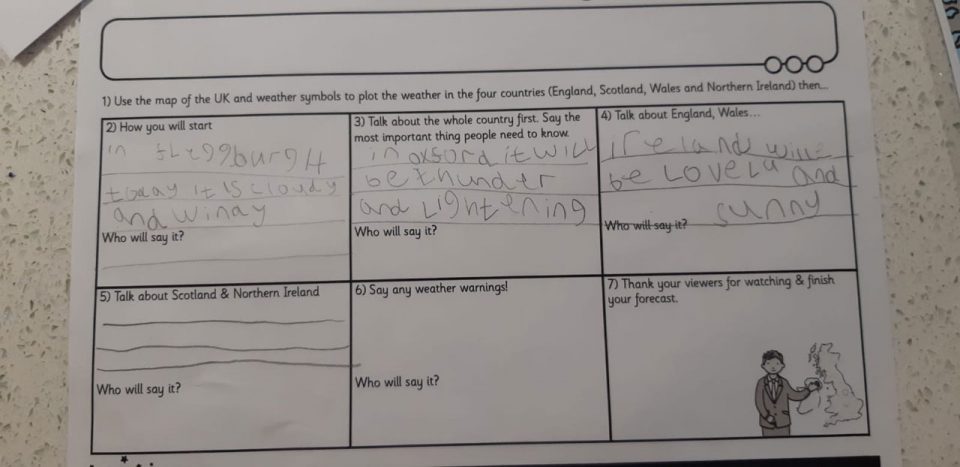 1) Use the map of the UK and weather symbols to plot the weather in the four countries (England, Scotland, Wales and Northern Ireland) then...
2) How you will start
in
today it is cloudy
and windy
Who will say it?
3) Talk about the whole country first. Say the
most important thing people need to know.
in oxsord it will
be thunder
and Lightening
Who will say it?
4) Talk about England, Wales...
Ireland will
be LoveLy and
sunny
Who will say it?
5) Talk about Scotland & Northern Ireland
Who will say it?
6) Say any weather warnings!
Who will say it?
7) Thank your viewers for watching & finish
your forecast.